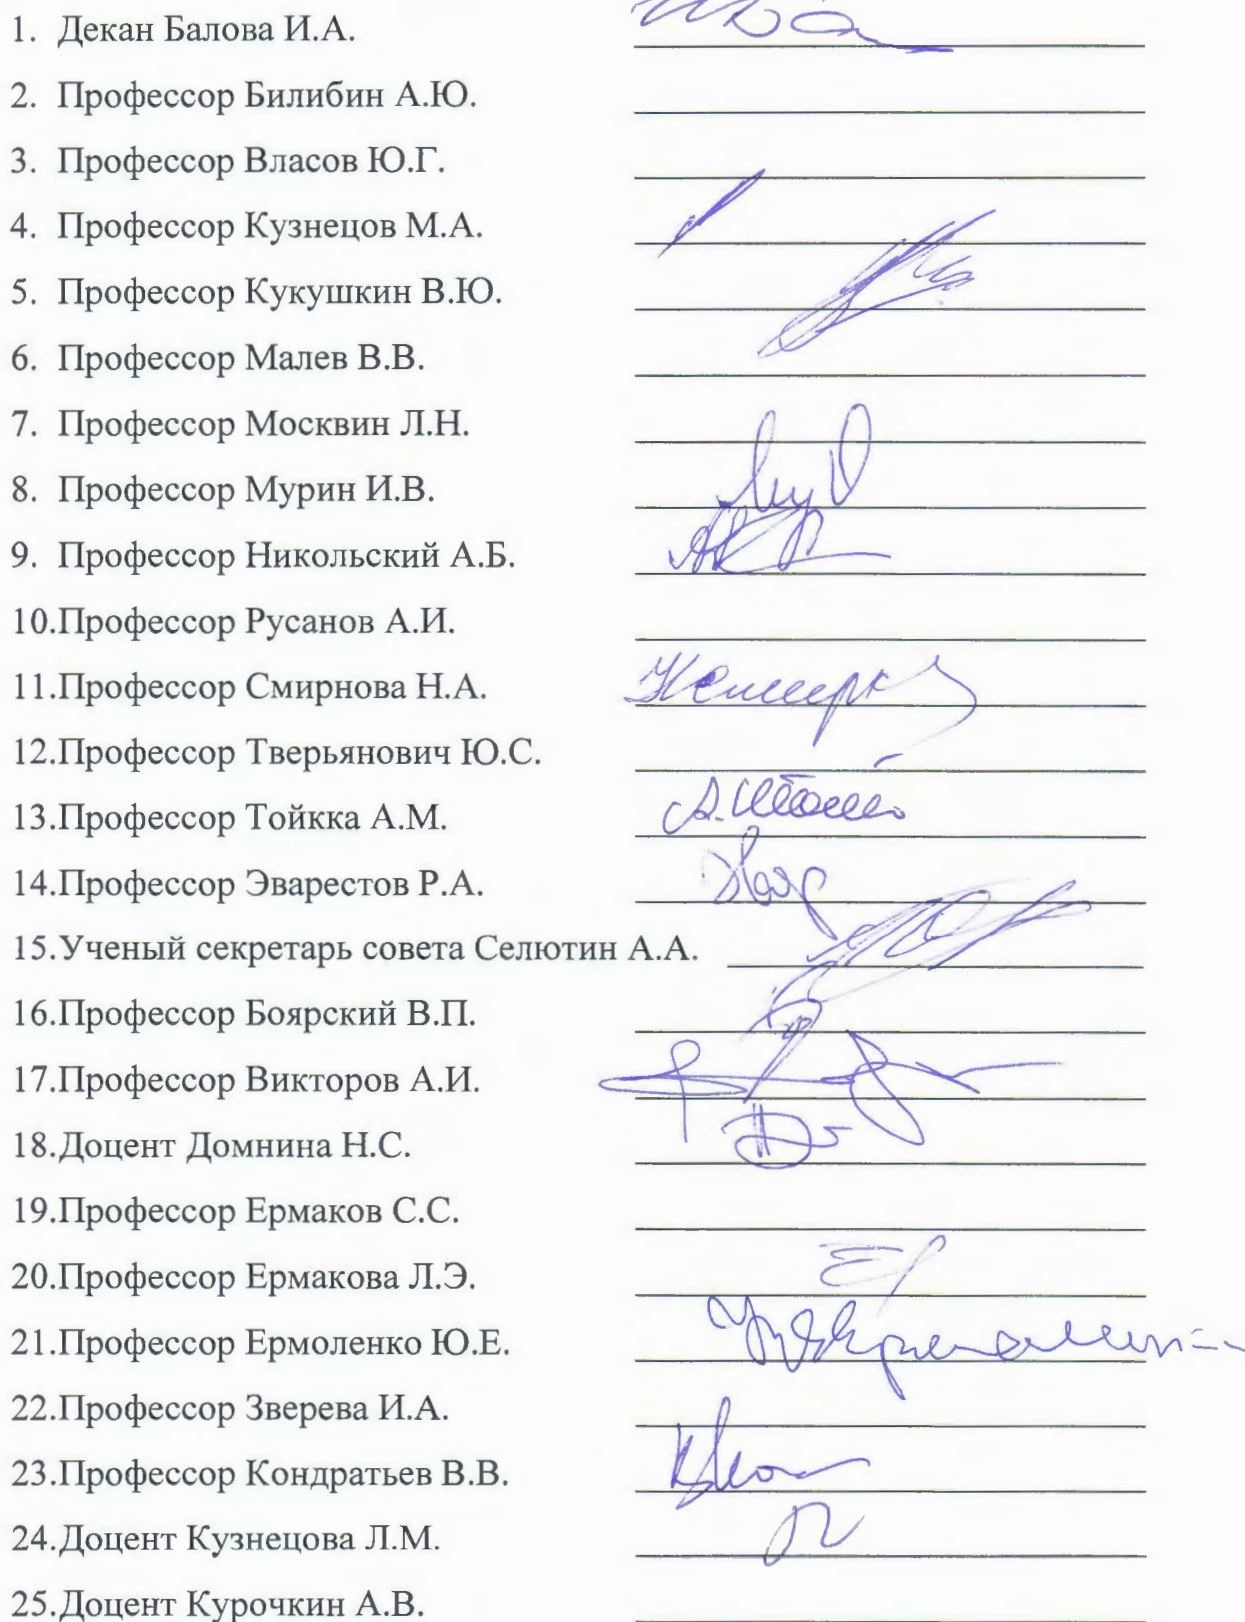 1. Декан Балова И.А.
2. Профессор Билибин А.Ю.
3. Профессор Власов Ю.Г.
4. Профессор Кузнецов М.А.
5. Профессор Кукушкин В.Ю.
6. Профессор Малев В.В.
7. Профессор Москвин Л.Н.
8. Профессор Мурин И.В.
9. Профессор Никольский А.Б.
10.Профессор Русанов А.И.
11.Профессор Смирнова Н.А.
12.Профессор Тверьянович Ю.С.
13.Профессор Тойкка А.М.
14.Профессор Эварестов Р.А.
15.Ученый секретарь совета Селютин А.А.
16.Профессор Боярский В.П.
17.Профессор Викторов А.И.
18.Доцент Домнина Н.С.
19.Профессор Ермаков С.С.
20.Профессор Ермакова Л.Э.
21.Профессор Ермоленко Ю.Е.
22.Профессор Зверева И.А.
23.Профессор Кондратьев В.В.
24.Доцент Кузнецова Л.М.
25.Доцент Курочкин А.В.